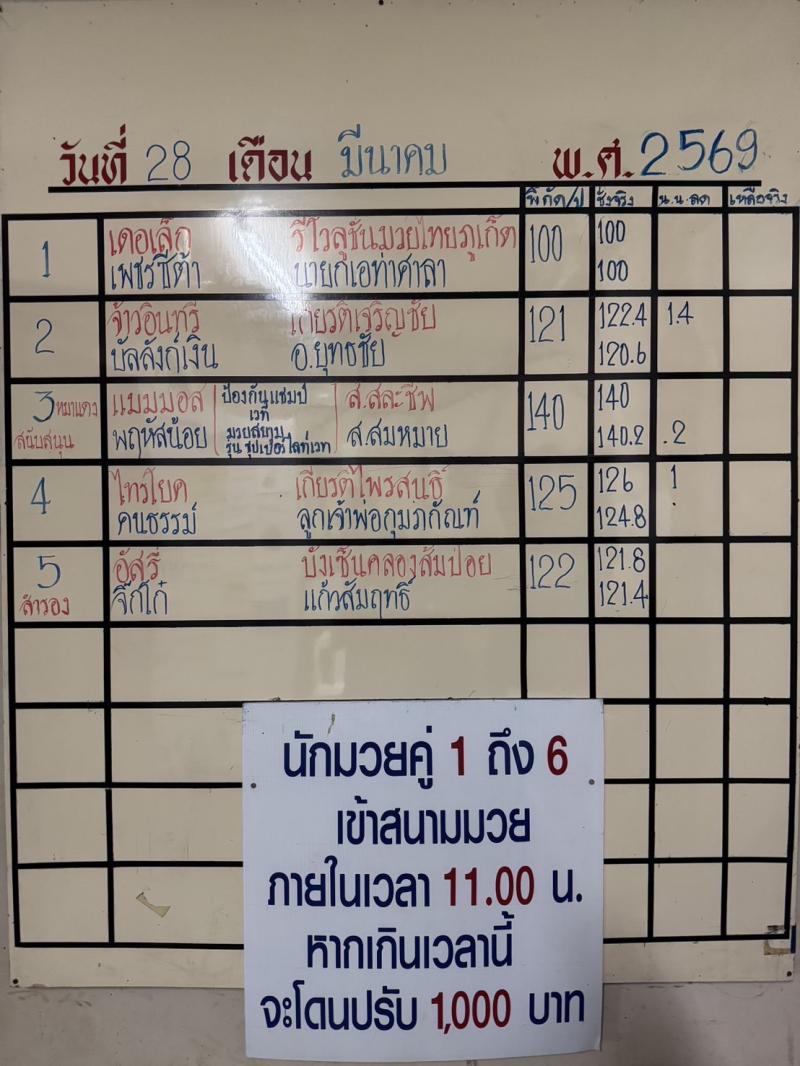 วันที่ 28 เดือน มีนาคม พ.ศ. 2569
พิกัด/ป ชั่งจริง น.น.ลด เหลือจริง
1 เดอเล็ก รีโวลูชั่นมวยไทยภูเก็ต 100 100
เพชรซีต้า นายกเอท่าศาลา 100
2 จ้าวอินทรี เกียรติเจริญชัย 121 122.4 1.4
บัลลังก์เงิน อ.ยุทธชัย 120.6
3 หมาแดง แมมมอส ป้องกันแชมป์ ส.สละชีพ 140 140
เวที
สนับสนุน พฤหัสน้อย มวยสยาม ส.สมหมาย 140.2 .2
รุ่น ซุปเปอร์ไลท์เวท
4 ไทรโยค เกียรติไพรสนธิ์ 125 126 1
คนธรรม์ ลูกเจ้าพ่อกุมภกัณฑ์ 124.8
5 อัสรี บังเซ็นคลองส้มป่อย 122 121.8
สำรอง จิ๊กโก๋ แก้วสัมฤทธิ์ 121.4
นักมวยคู่ 1 ถึง 6
เข้าสนามมวย
ภายในเวลา 11.00 น.
หากเกินเวลานี้
จะโดนปรับ 1,000 บาท